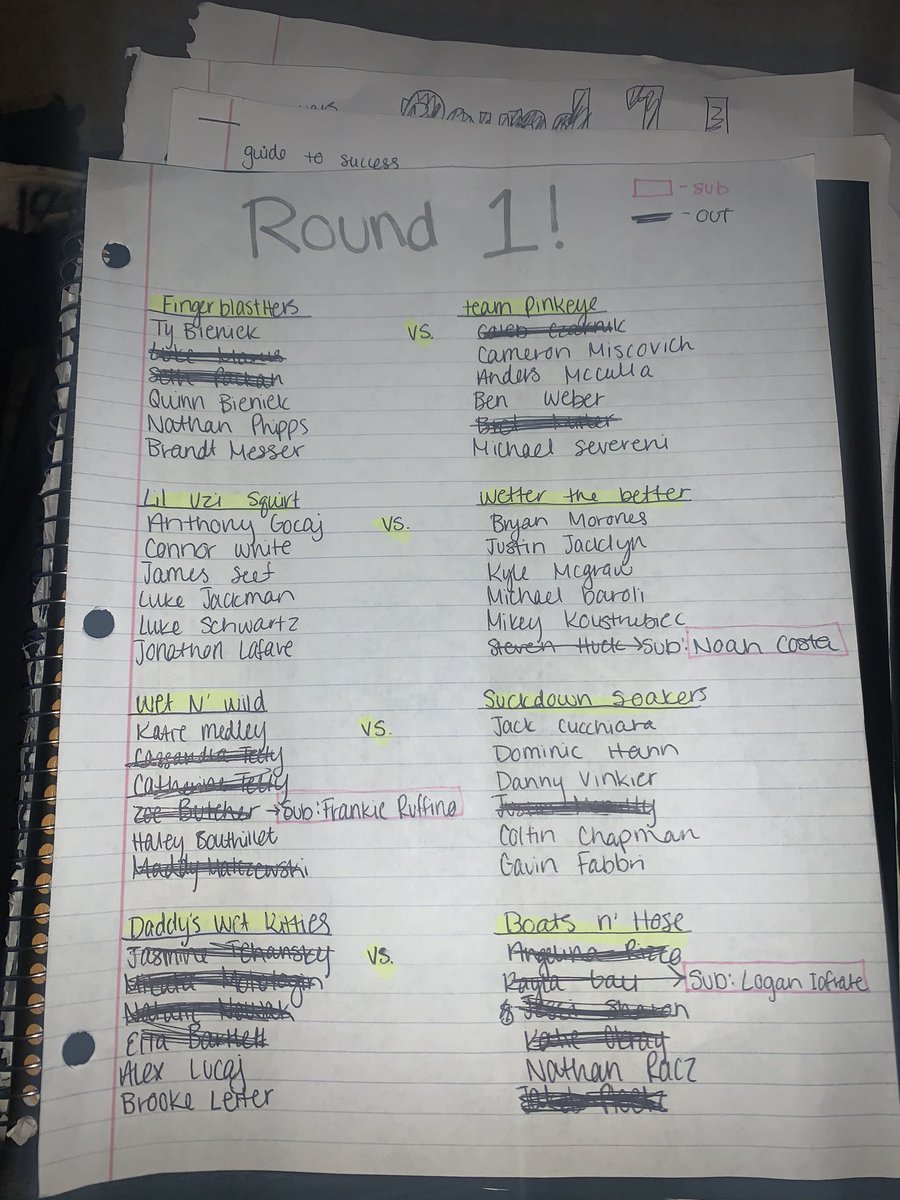 guide to success
Round 1!
- sub
- OUT
Fingerblastters
team pinkeye
Ty Bienick
vs.
Cameron Miscovich
Anders McCulla
Quinn Bieniek
Ben Weber
Nathan Phipps
Brandt Messer
Michael Severeni
Lil Uzi Squirt
Wetter the better
Anthony Gocaj
vs.
Bryan Morones
Connor White
Justin Jacklyn
James Seef
Kyle Mcgraw
Luke Jackman
Michael Baroli
Luke Schwartz
Mikey Koustrubiec
Jonathon Lafave
Steven Huck → Sub: Noah Costa
Wet N' Wild
Suckdown Soakers
Katie Medley
vs.
Jack Cucchiara
Cassandra Tetty
Dominic Hann
Catherine Tetty
Danny Vinkier
Zoe Butcher → Sub: Frankie Ruffino
Haley Bouthillet
Coltin Chapman
Maddy
Gavin Fabbri
Daddy's Wet Kitties
Boats n' Hose
Jasmine
vs.
Angelina
Kayla → Sub: Logan Iafrate
Ella Bartlett
Katie
Alex Lucaj
Nathan Racz
Brooke Leffer